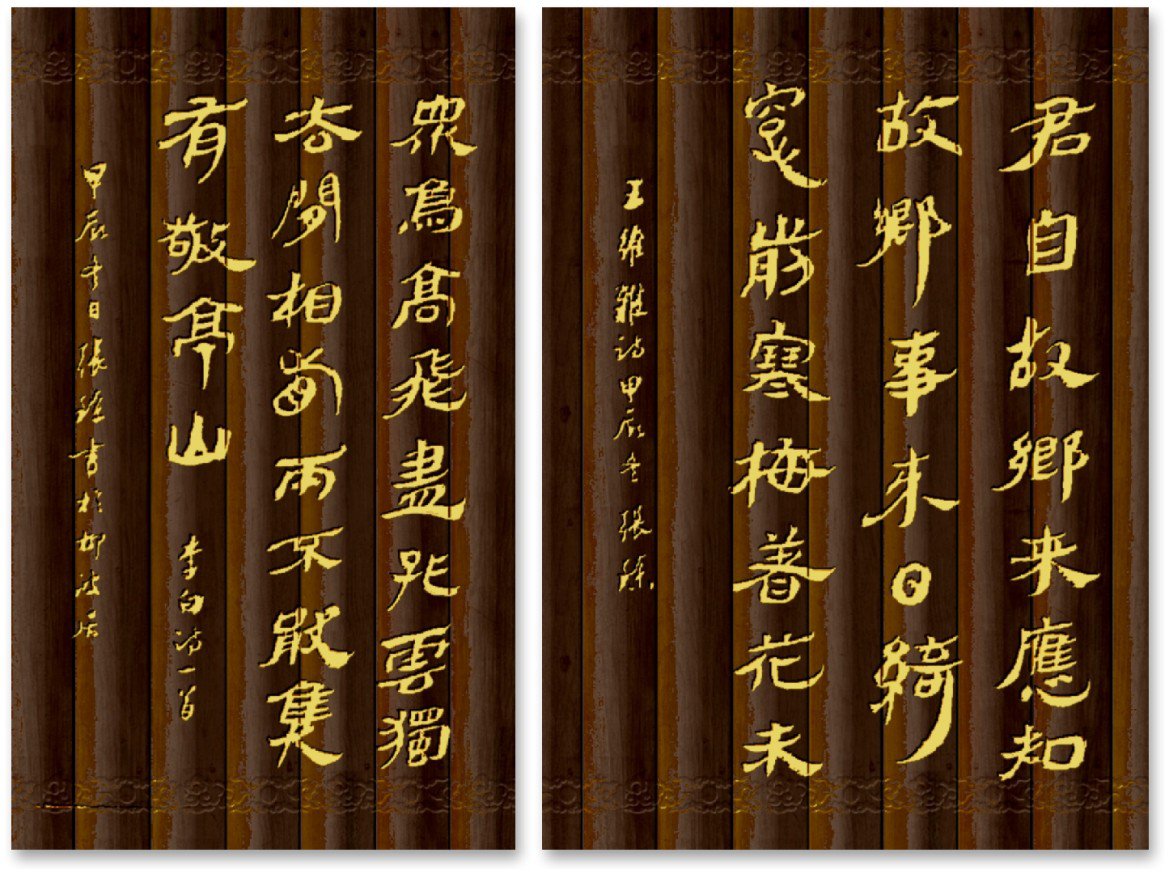 君自故鄉来應知
故鄉事来日綺
窓前寒梅著花未
王維雜诗甲辰冬張
衆鳥高飛盡孤雲獨
去閒相看兩不厭隻
有敬亭山
李白诗一首
甲辰冬日張書於柳波居